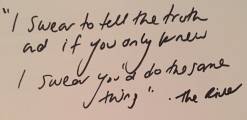 "I swear to tell the truth
and if you only knew
I swear you'd do the same
thing" - The River